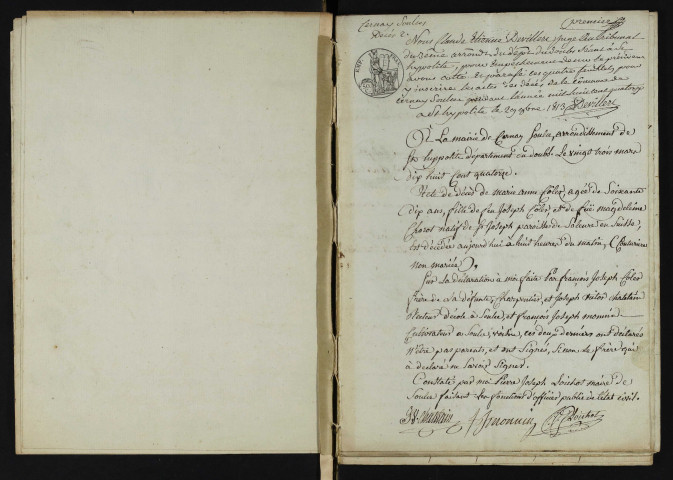 Cernay Soulce
Décès 2.
premier
Nous Claude Etienne Devillers, juge au tribunal
du arrondt. du dépt. du Doubs séant à St.
hypolite, pour empêchement de mr. le président
avons cotté et paraphé les quatre feuillets pour
y inscrire les actes de décès de la commune de
Cernay Soulce pendant l'année mil huit cent quatorze
a St. hypolite le 1813 Devillers
De la mairie de Cernay Soulce, arrondissement de
St. hyppolite département du doubs. Le vingt trois mars
dix huit Cent quatorze.
Acte de décès de marie anne agée de Soixante
dix ans, fille de feu Joseph et de feüe magdeleine
natif de St. Joseph paroisse de Soleure en Suisse,
est décédée aujourd'hui à huit heures du matin, (Couturière
non mariée).
Sur la déclaration à moi faite par françois Joseph
frère de la défunte, Charpentier, et Joseph victor Chatelain
Recteur d'école à Soulce, et françois Joseph monnin
Cultivateur a Soulce, voisin, ces deux derniers ont déclarés
n'être pas parents, et ont Signés, Sinon le frère qui
à déclaré ne savoir Signer.
Constaté par moi Pierre Joseph Loichot maire de
Soulce faisant les fonctions d'officier public de l'état civil.
JV. Chatelain fJmonnin PJ Loichot